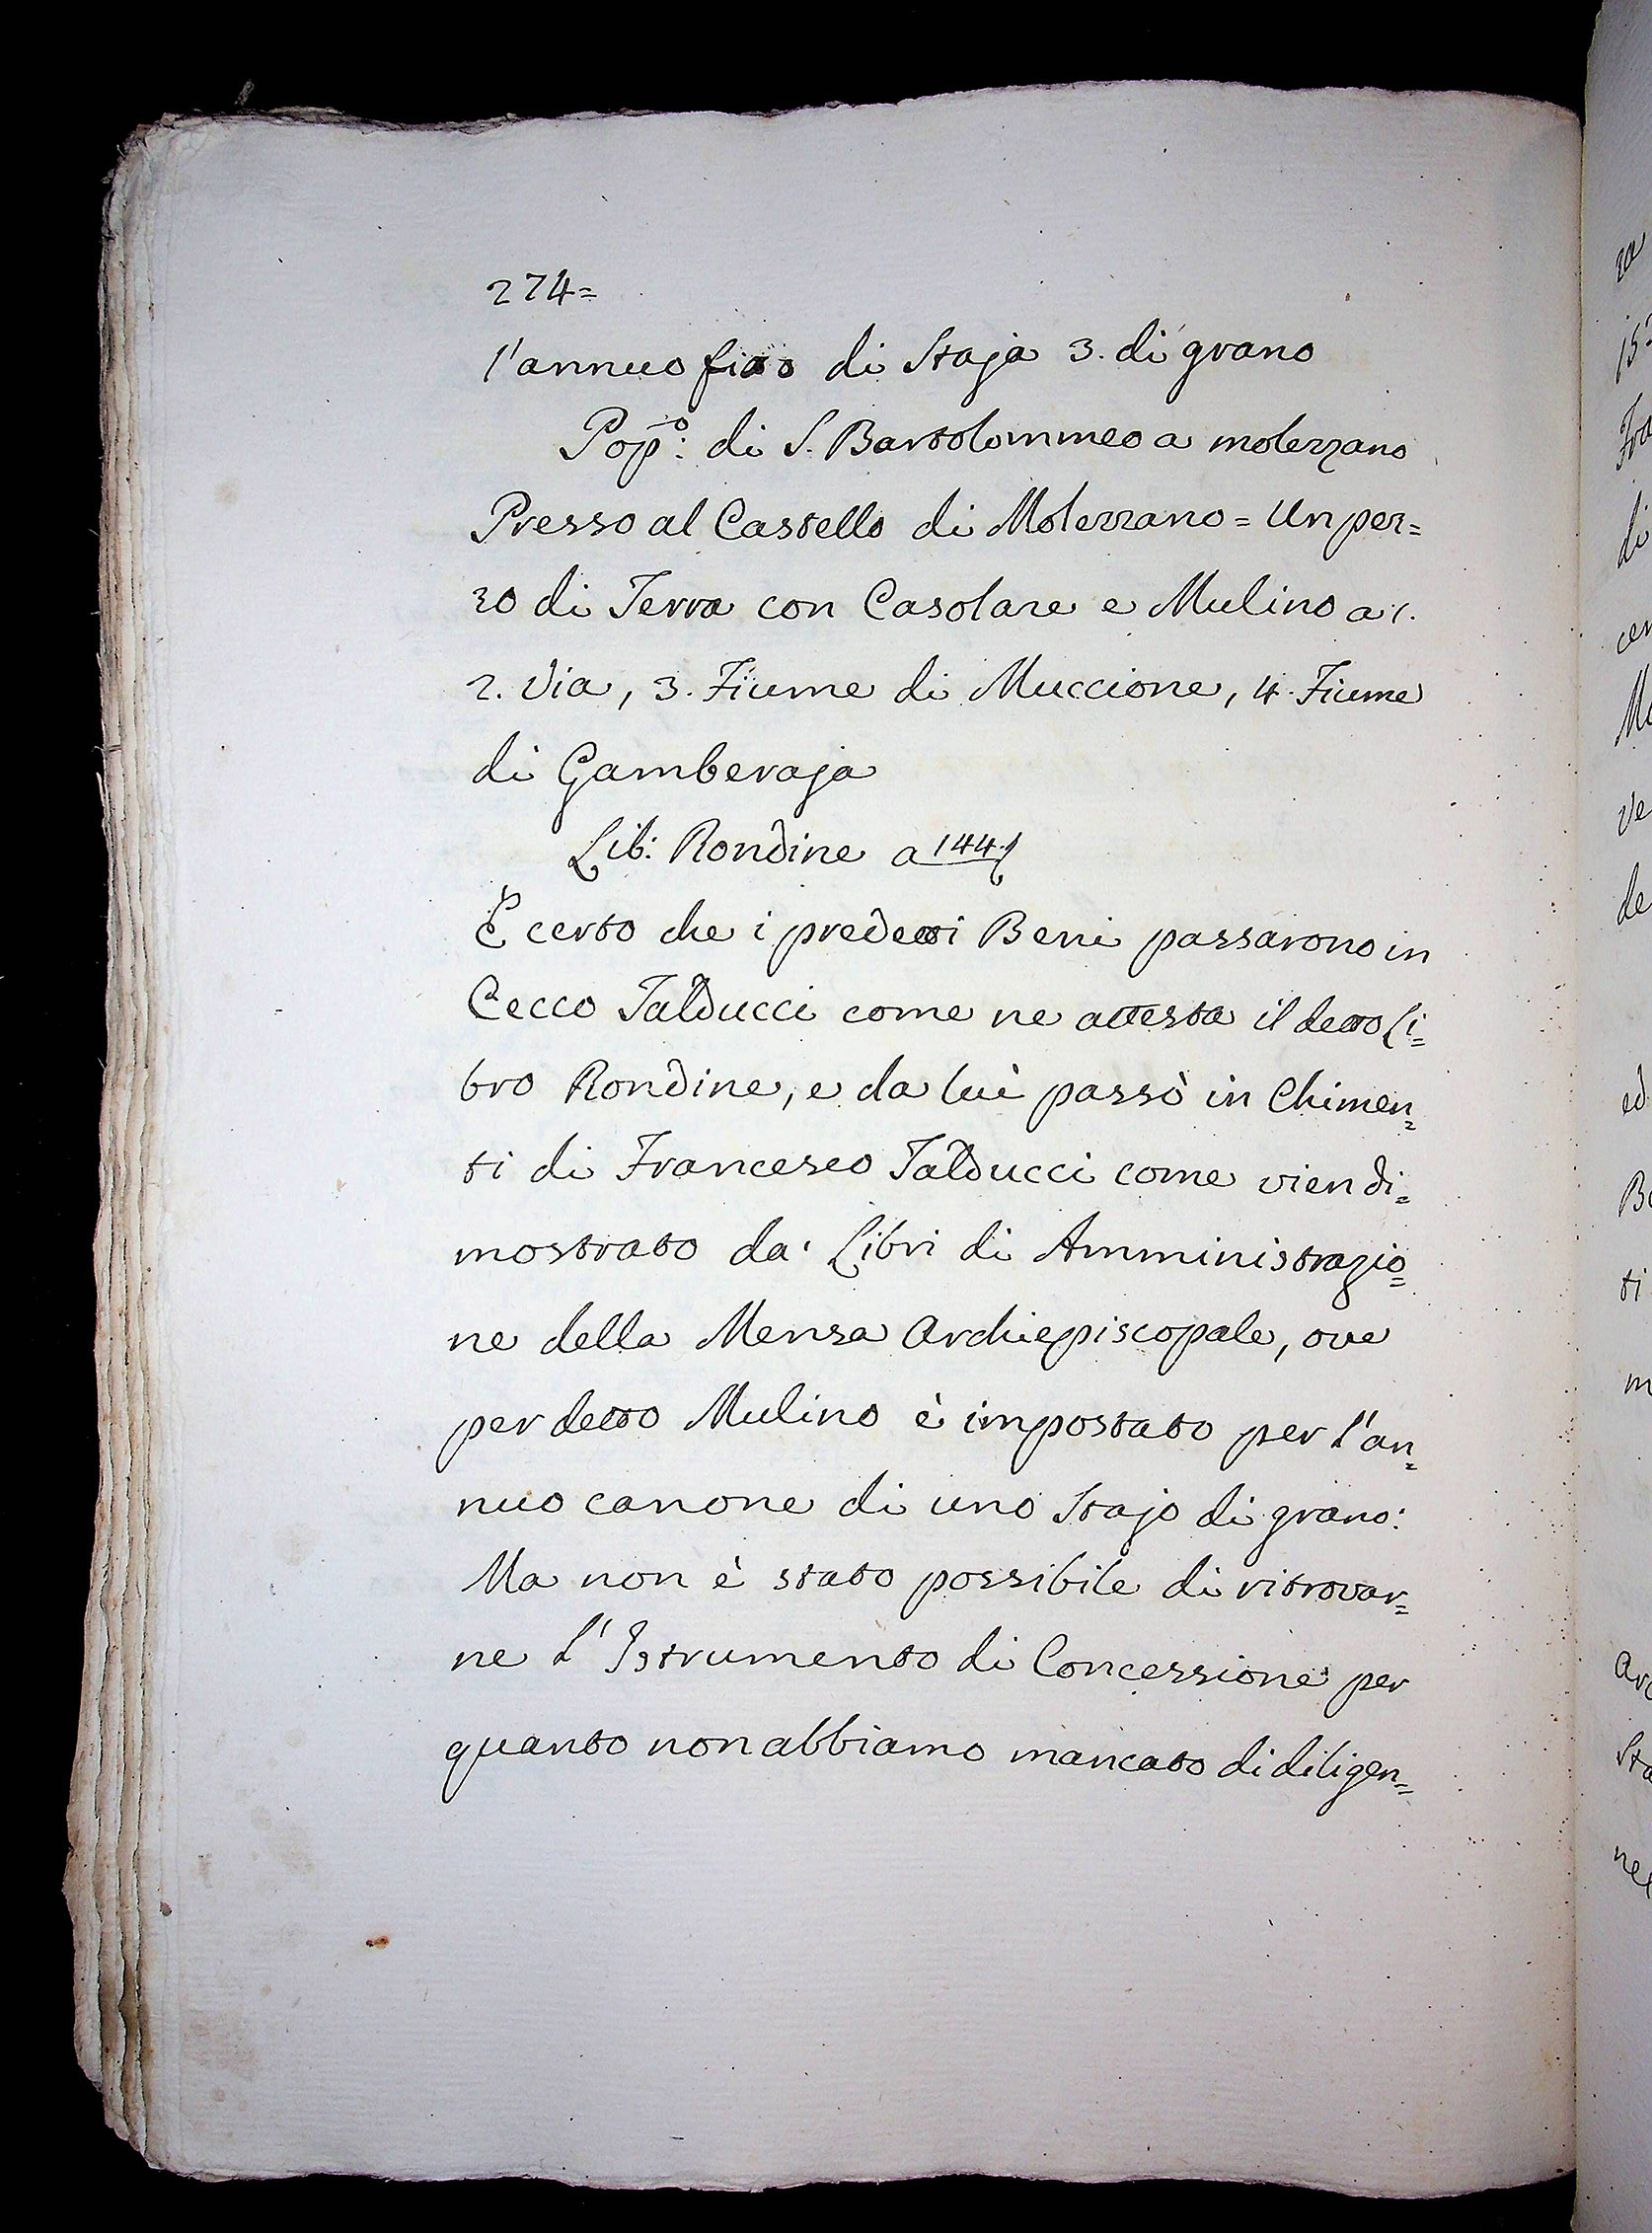 274=
l'annuo fitto di Staja 3. di grano
Pop:º di S. Bartolommeo a molezzano
Presso al Castello di Molezzano = Un pez=
zo di Terra con Casolare e Mulino a 1.
2. Via, 3. Fiume di Muccione, 4. Fiume
di Gamberaja
Lib: Rondine a 144.
È certo che i predetti Beni passarono in
Cecco Talducci come ne attesta il detto Li=
bro Rondine, e da lui passò in Chimen=
ti di Francesco Talducci come vien di=
mostrato da' Libri di Amministrazio=
ne della Mensa Archiepiscopale, ove
per detto Mulino è impostato per l'an=
nuo canone di uno Stajo di grano:
Ma non è stato possibile di ritrovar=
ne l'Istrumento di Concessione per
quanto non abbiamo mancato di diligen=